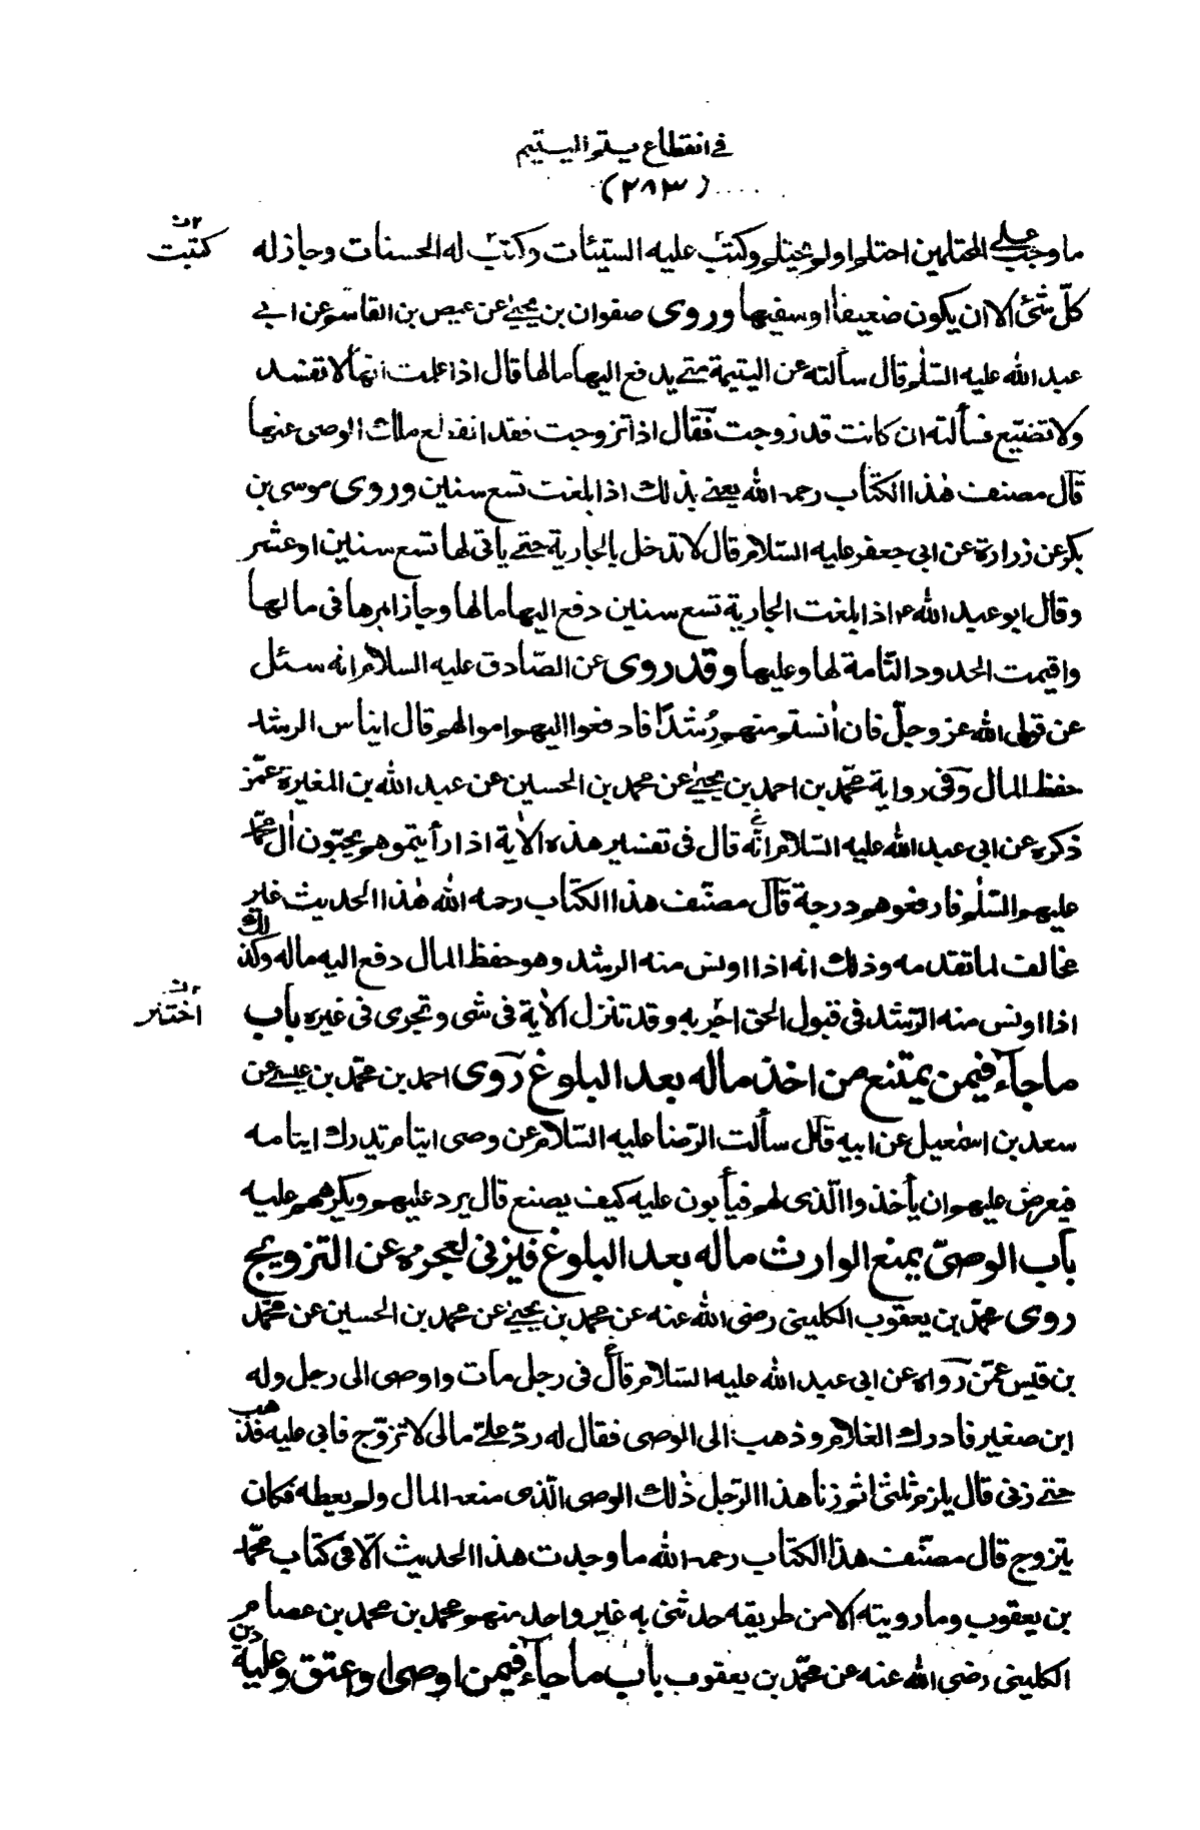 في انقطاع يتم اليتيم
(٢٨٣)
ما وجب على المحتلمين احتلم او لم يحتلم وكتبت عليه السيئات وكتبت له الحسنات وجاز له
كتبت
كلّ شئ الا ان يكون ضعيفا او سفيها وروى صفوان بن يحيى عن عيص بن القاسم عن ابي
عبد الله عليه السّلم قال سألته عن اليتيمة متى يدفع اليها مالها قال اذا علمت انها لا تفسد
ولا تضيّع فسألته ان كانت قد زوجت فقال اذا تزوجت فقد انقطع ملك الوصى عنها
قال مصنف هذا الكتاب رحمه الله يعنى بذلك اذا بلغت تسع سنين وروى موسى بن
بكر عن زرارة عن ابى جعفر عليه السّلام قال لا تدخل بالجارية حتى يأتى لها تسع سنين او عشر
وقال ابو عبد الله ع اذا بلغت الجارية تسع سنين دفع اليها مالها وجاز امرها فى مالها
واقيمت الحدود التّامة لها وعليها وقد روى عن الصّادق عليه السلام انه سئل
عن قول الله عز وجلّ فان اٰنستم منهم رُشدًا فادفعوا اليهم اموالهم قال ايناس الرشد
حفظ المال وفى رواية محمّد بن احمد بن يحيى عن محمد بن الحسين عن عبد الله بن المغيرة عمّن
ذكره عن ابى عبد الله عليه السّلام انّه قال فى تفسير هذه الاٰية اذا رأيتموهم يحبّون اٰل محمّد
عليهم السّلم فارفعوهم درجة قال مصنّف هذا الكتاب رحمه الله هٰذا الحديث غير
مخالف لما تقدمه وذلك انه اذا اونس منه الرشد وهو حفظ المال دفع اليه ماله وكذلك
اذا اونس منه الرّشد فى قبول الحق اختبر به وقد تنزل الاٰية فى شى وتجرى فى غيره باب
اختبر
ما جآء فيمن يمتنع من اخذ ماله بعد البلوغ روى احمد بن محمّد بن عيسى عن
سعد بن اسمٰعيل عن ابيه قال سألت الرّضا عليه السّلام عن وصى ايتام تدرك ايتامه
فيعرض عليهم ان يأخذوا الّذى لهم فيأبون عليه كيف يصنع قال يرد عليهم ويكرههم عليه
باب الوصىّ يمنع الوارث ماله بعد البلوغ فيزنى لعجزه عن التزويج
روى محمّد بن يعقوب الكلينى رضى الله عنه عن محمد بن يحيى عن محمد بن الحسين عن محمّد
بن قيس عمّن رواه عن ابى عبد الله عليه السّلام قال فى رجل مات واوصى الى رجل وله
ابن صغير فادرك الغلام وذهب الى الوصى فقال له ردّ علىّ مالى لاتزوّج فابى عليه فذهب
حتى زنى قال يلزم ثلثى اثم زنا هذا الرّجل ذٰلك الوصى الّذى منعه المال ولم يعطه فكان
يتزوج قال مصنّف هذا الكتاب رحمه الله ما وجدت هذا الحديث الّا فى كتاب محمّد
بن يعقوب وما رويته الا من طريقه حدثنى به غير واحد منهم محمد بن محمد بن عصام
الكلينى رضى الله عنه عن محمّد بن يعقوب باب ما جآء فيمن اوصى او عتق وعليه دين